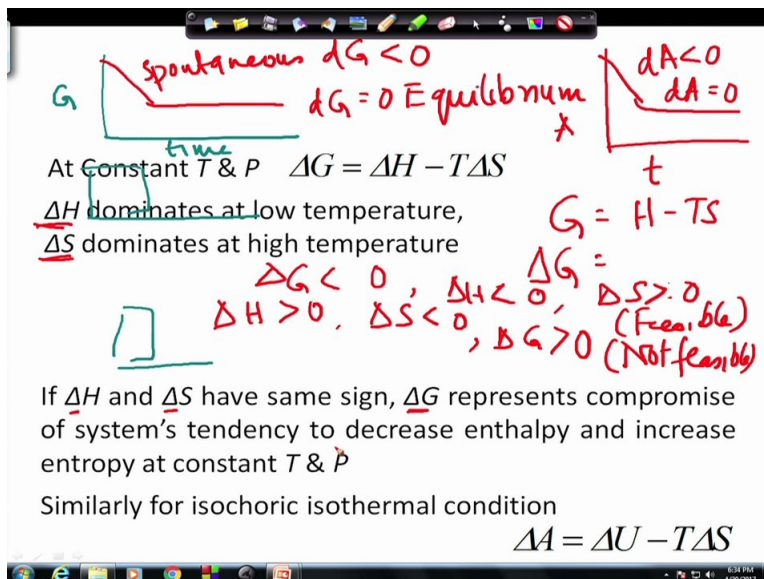 spontaneous dG < 0
dA < 0
G
dG = 0 Equilibrium
dA = 0
A
time
t
At Constant T & P ΔG = ΔH – TΔS
ΔH dominates at low temperature,
G = H - TS
ΔS dominates at high temperature
ΔG =
ΔG < 0, ΔH < 0, ΔS > 0
(Feasible)
ΔH > 0, ΔS < 0, ΔG > 0
(Not feasible)
If ΔH and ΔS have same sign, ΔG represents compromise
of system's tendency to decrease enthalpy and increase
entropy at constant T & P
Similarly for isochoric isothermal condition
ΔA = ΔU – TΔS
6:34 PM